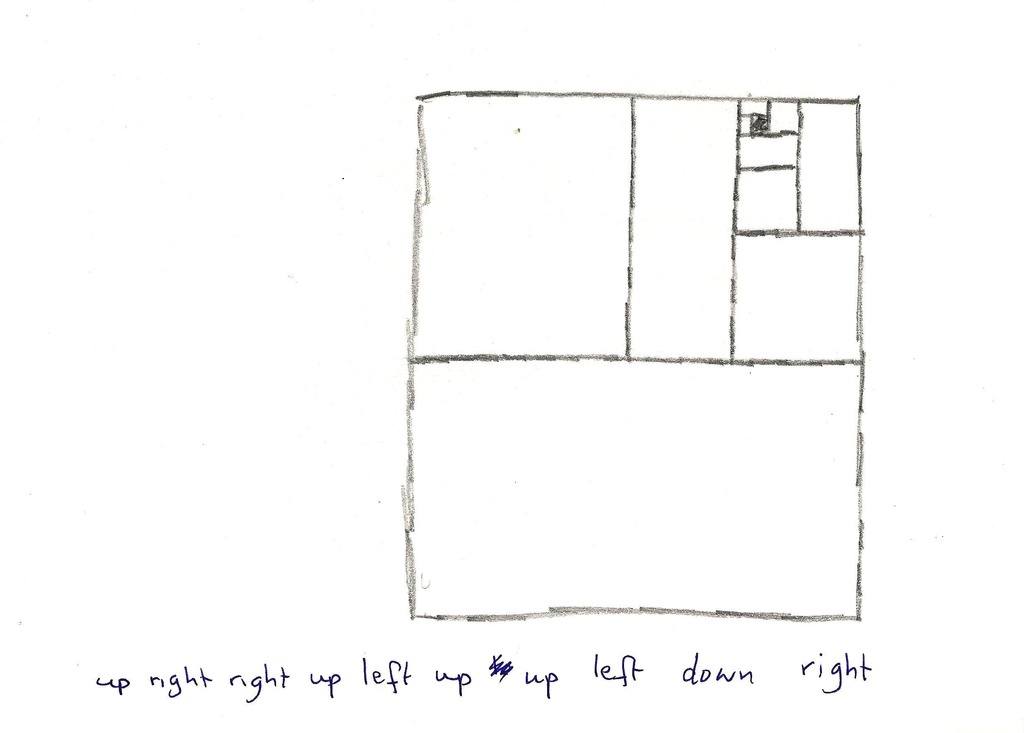 up right right up left up up left down right